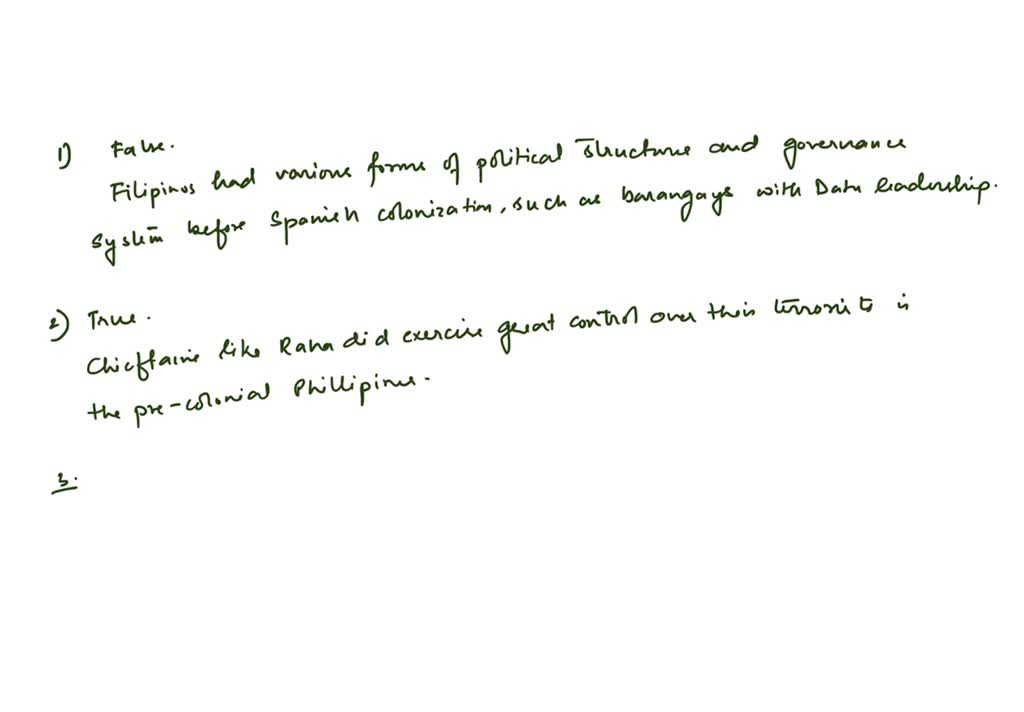 1) False.
Filipinos had various forms of political structure and governance
system before Spanish colonization, such as barangays with Datu leadership.
2) True.
Chieftains like Raha did exercise great control over their in
the pre-colonial Phillipines.
3.